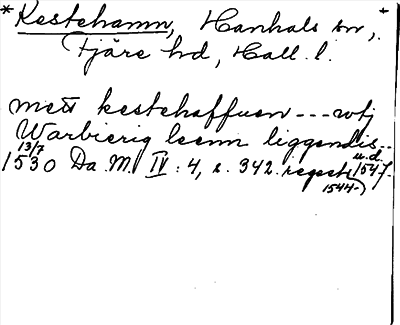 *Kestehamn, Hanhals sn,
Fjäre hd, Hall. l.
mett kestehaffuen --- wtj
Warbierig leenn liggendis --
13/7 1530 Da. M. IV : 4, s. 342. regest u.d. 1547.
1544-)